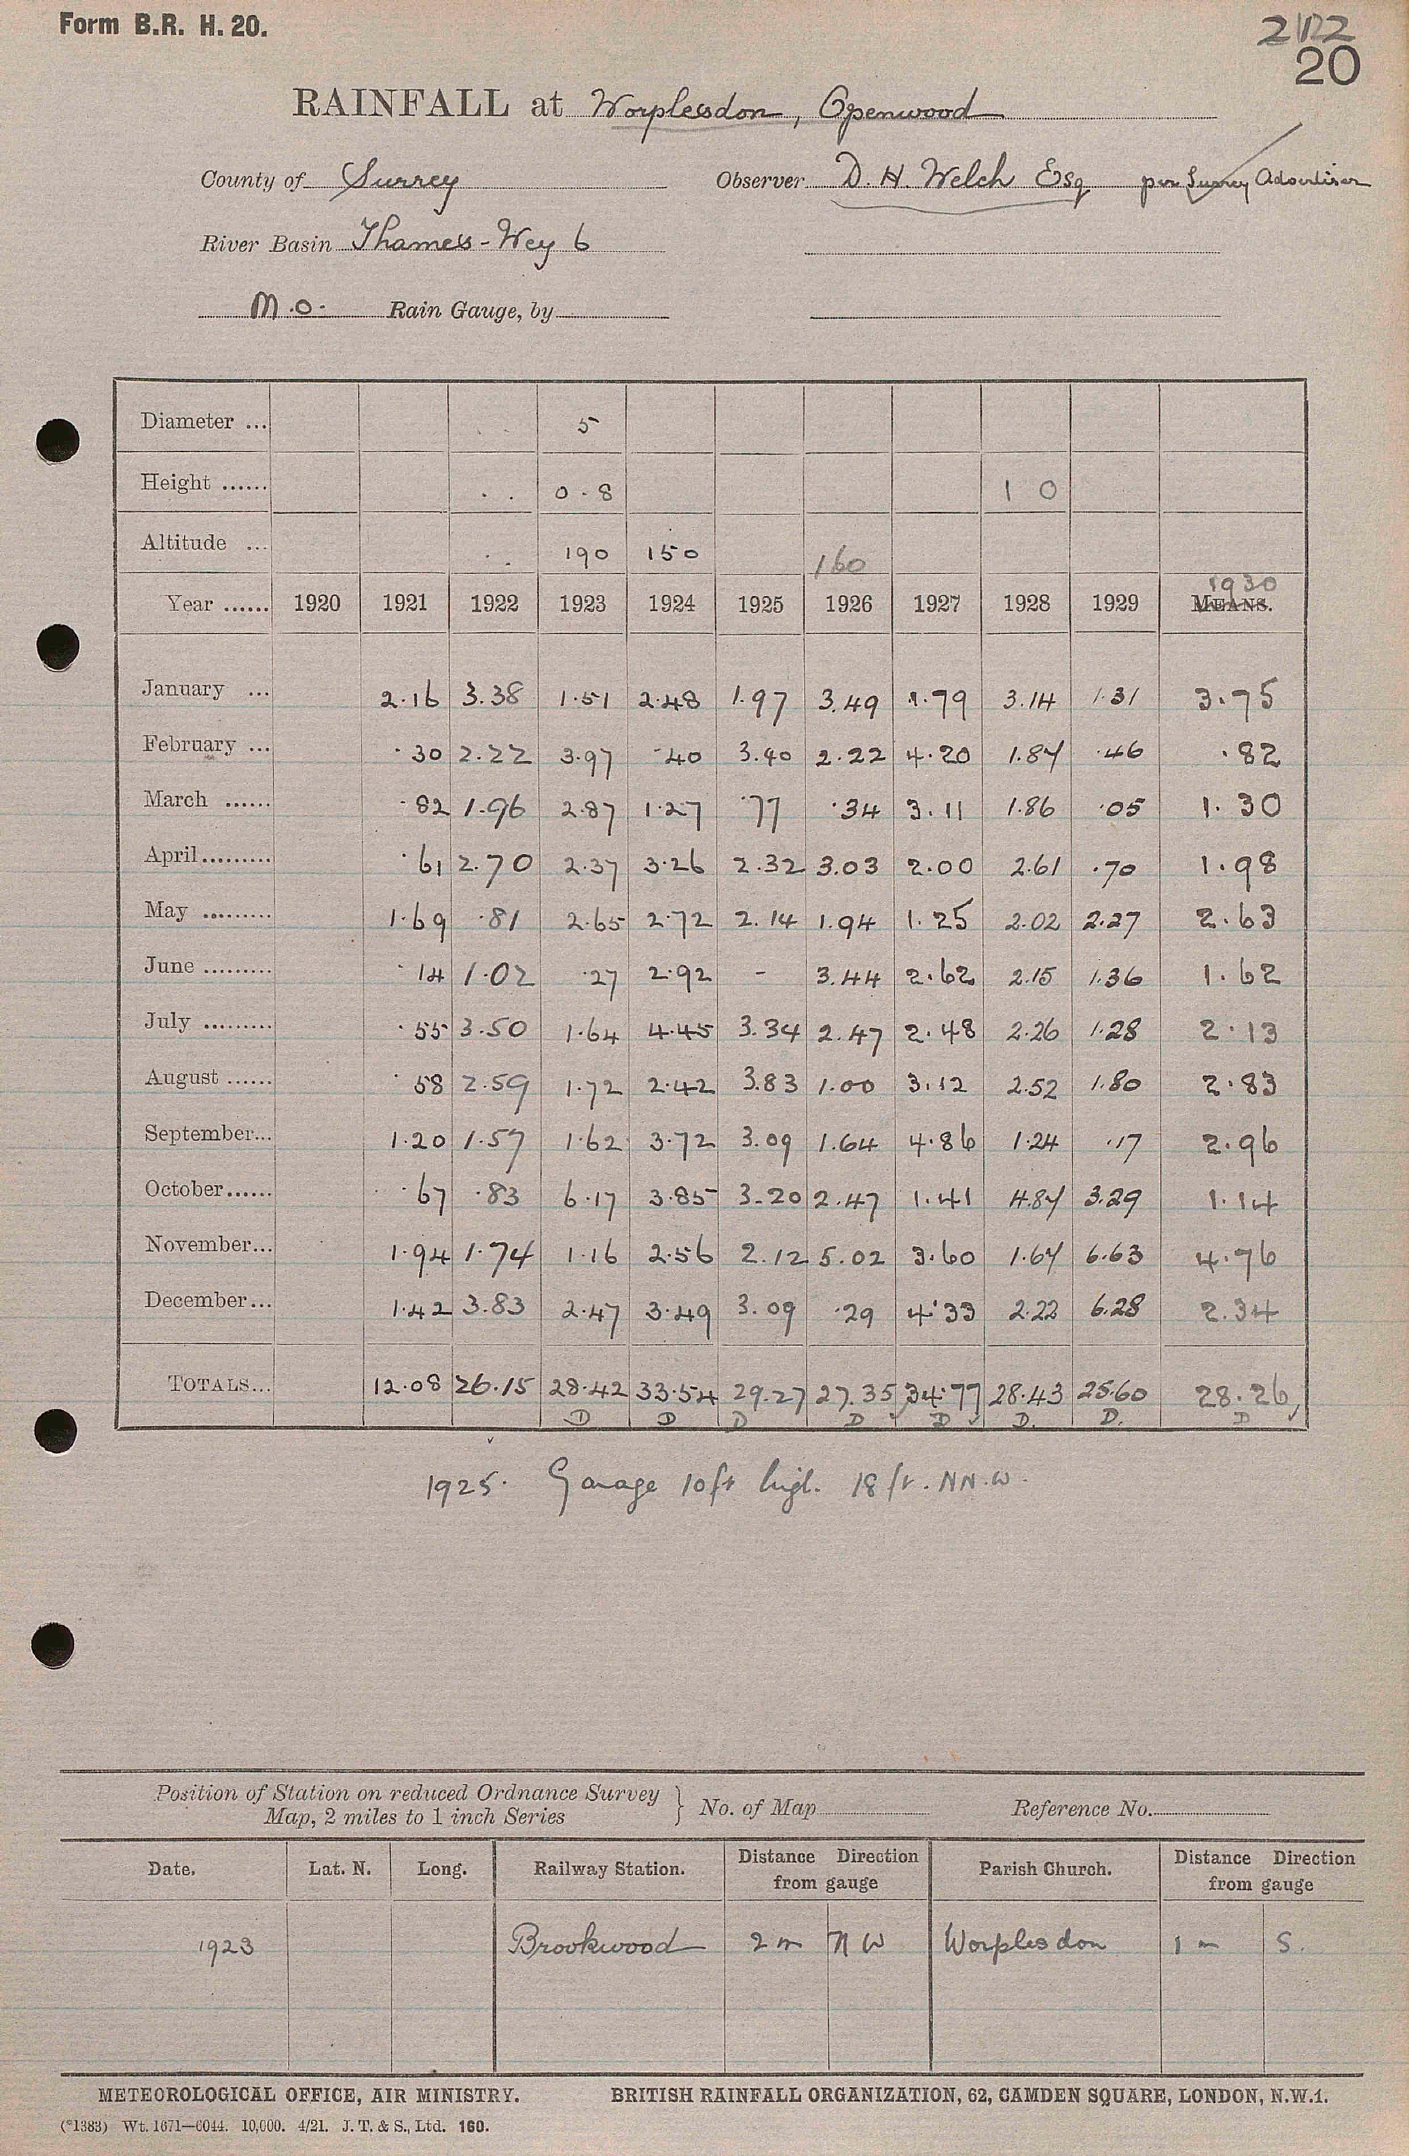 Form B.R. H. 20.
2122
20
RAINFALL at Worplesdon, Openwood
County of Surrey Observer D. H. Welch Esq per Surrey Advertiser
River Basin Thames - Wey 6
M.O. Rain Gauge, by
Diameter ... 5
Height ...... 0.8 1 0
Altitude ... 190 150 160
Year ...... 1920 1921 1922 1923 1924 1925 1926 1927 1928 1929 MEANS. 1930
January ... 2.16 3.38 1.51 2.48 1.97 3.49 1.79 3.14 1.31 3.75
February ... .30 2.22 3.97 .40 3.40 2.22 4.20 1.87 .46 .82
March ...... .82 1.96 2.87 1.27 .77 .34 3.11 1.86 .05 1.30
April ......... .61 2.70 2.37 3.26 2.32 3.03 2.00 2.61 .70 1.98
May ......... 1.69 .81 2.65 2.72 2.14 1.94 1.25 2.02 2.27 2.63
June ......... .14 1.02 .27 2.92 - 3.44 2.62 2.15 1.36 1.62
July ......... .55 3.50 1.64 4.45 3.34 2.47 2.48 2.26 1.28 2.13
August ...... .58 2.59 1.72 2.42 3.83 1.00 3.12 2.52 1.80 2.83
September... 1.20 1.57 1.62 3.72 3.09 1.64 4.86 1.24 .17 2.96
October...... .67 .83 6.17 3.85 3.20 2.47 1.41 4.87 3.29 1.14
November... 1.94 1.74 1.16 2.56 2.12 5.02 3.60 1.67 6.63 4.76
December... 1.42 3.83 2.47 3.49 3.09 .29 4.33 2.22 6.28 2.34
TOTALS... 12.08 26.15 28.42 33.54 29.27 27.35 34.77 28.43 25.60 28.26
D D D D D D. D. D
1925. Garage 10ft high. 18 ft. NN.W.
Position of Station on reduced Ordnance Survey
Map, 2 miles to 1 inch Series } No. of Map Reference No.
Date. Lat. N. Long. Railway Station. Distance Direction from gauge Parish Church. Distance Direction from gauge
1923 Brookwood 2 m N W Worplesdon 1 m S.
METEOROLOGICAL OFFICE, AIR MINISTRY. BRITISH RAINFALL ORGANIZATION, 62, CAMDEN SQUARE, LONDON, N.W.1.
(*1383) Wt. 1671—6044. 10,000. 4/21. J. T. & S., Ltd. 160.